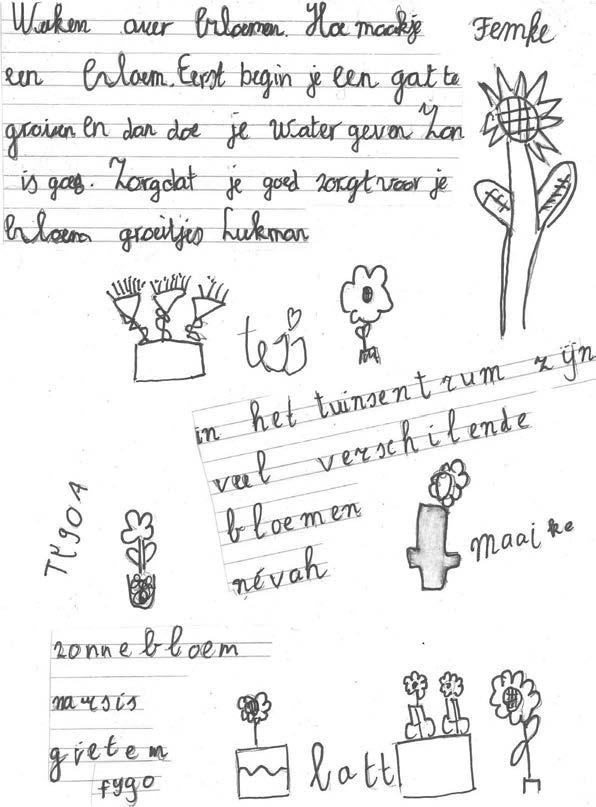 Weeken over bloemen. Hoe maakje
Femke
een bloem. Eerst begin je een gat te
graiven en dan doe je water geven Zon
is goed. Zorgdat je goed zorgt voor je
bloem groeitjes Lukman
in het tuinsentrum zijn
veel verschilende
bloemen
névah
maaike
Tygo A
zonnebloem
narsis
gietem
fygo